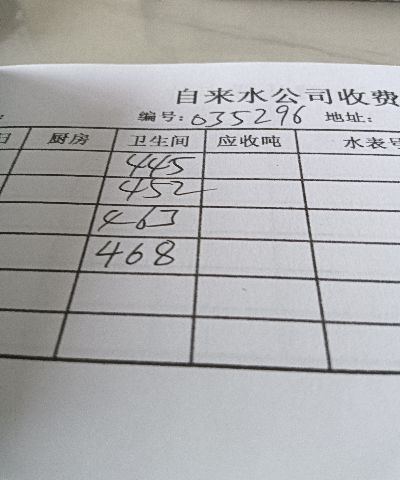 自来水公司收费
编号: 035296 地址:
厨房 卫生间 应收吨 水表号
445
452
463
468